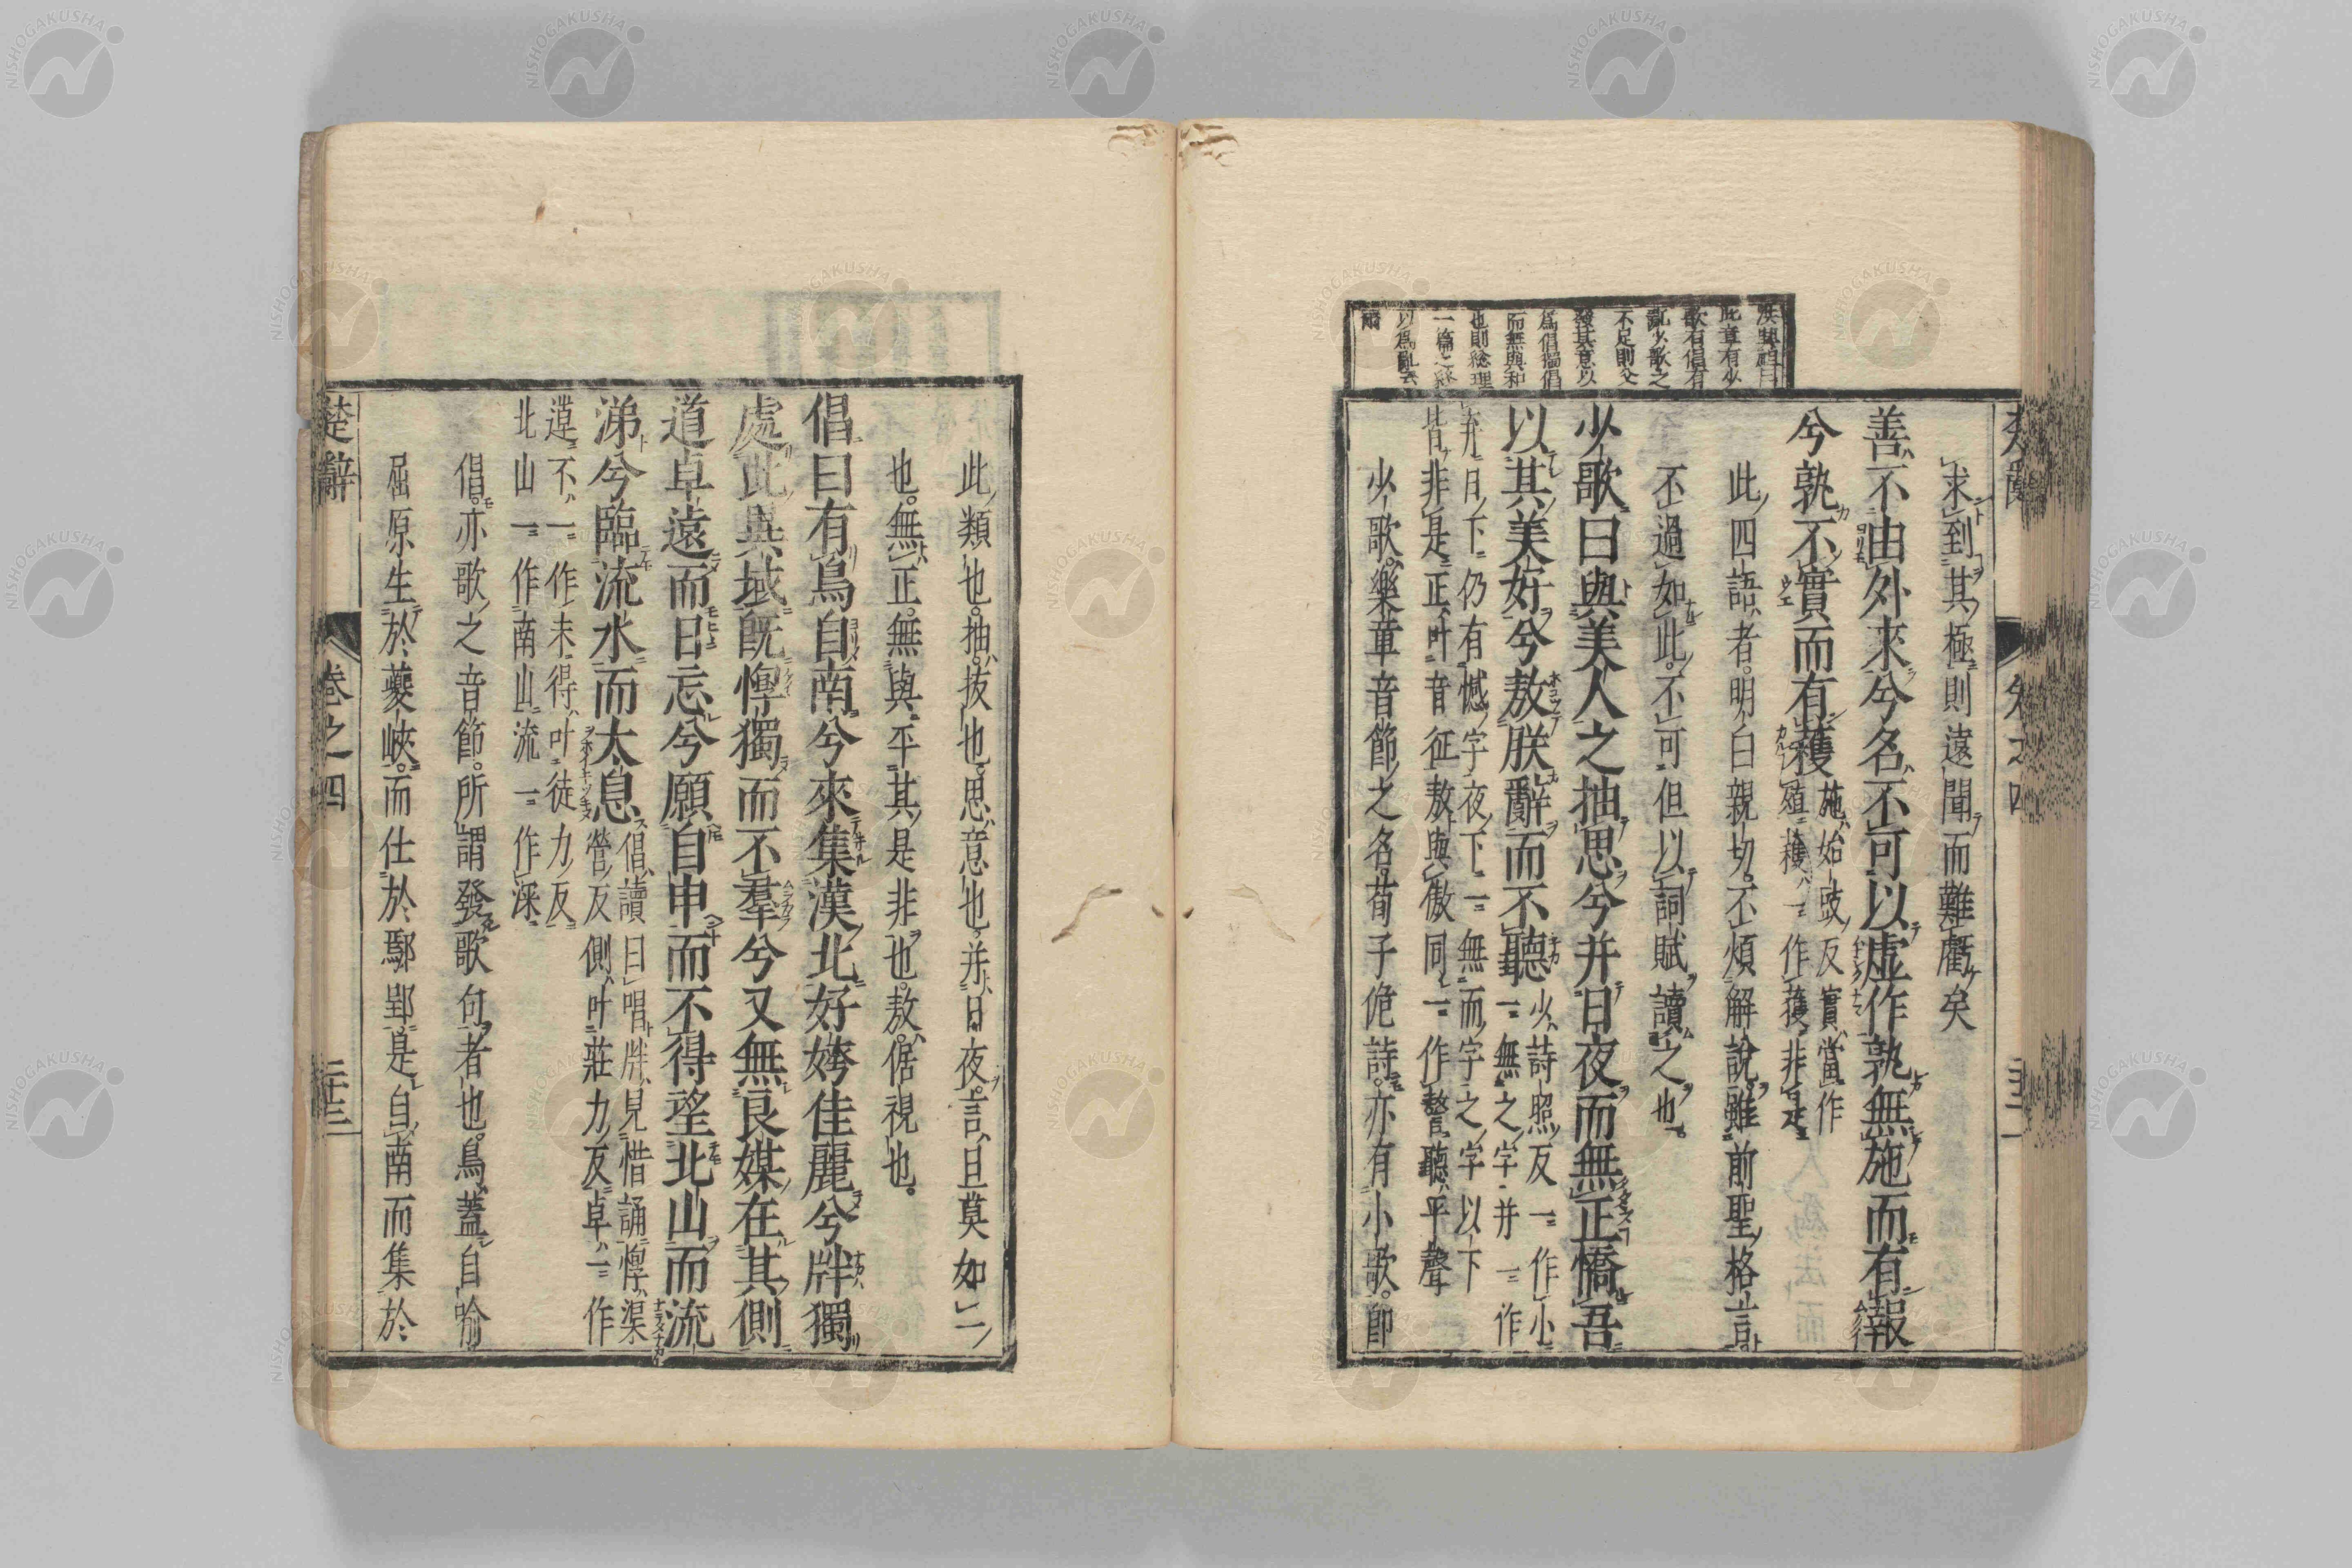 洪興祖曰
此章有少
歌有倡有
亂少歌之
不足則又
發其意以
爲倡獨倡
而無與和
也則總理
一篇之終
以爲亂云
爾
求到其極則遠聞而難虧矣
善不由外來兮名不可以虛作孰無施而有報
兮孰不實而有穫
施始豉反實當作
殖穫一作獲非是
此四語者明白親切不煩解說雖前聖格言
不過如此不可但以詞賦讀之也
少歌曰與美人之抽思兮并日夜而無正憍吾
以其美好兮敖朕辭而不聽
少詩照反一作小
一無之字并一作
弃日下仍有憾字夜下一無而字之字以下
皆非是正叶音征敖與傲同一作謷聽平聲
少歌樂章音節之名荀子佹詩亦有小歌卽
此類也抽拔也思意也并日夜言旦莫如一
也無正無與平其是非也敖倨視也
倡曰有鳥自南兮來集漢北好姱佳麗兮牉獨
處此異域旣惸獨而不羣兮又無良媒在其側
道卓遠而日忘兮願自申而不得望北山而流
涕兮臨流水而太息
倡讀曰唱牉見惜誦惸渠
營反側叶莊力反卓一作
逴不一作未得叶徒力反
北山一作南山流一作深
倡亦歌之音節所謂發歌句者也鳥蓋自喻
屈原生於夔峽而仕於鄢郢是自南而集於
楚辭 卷之四